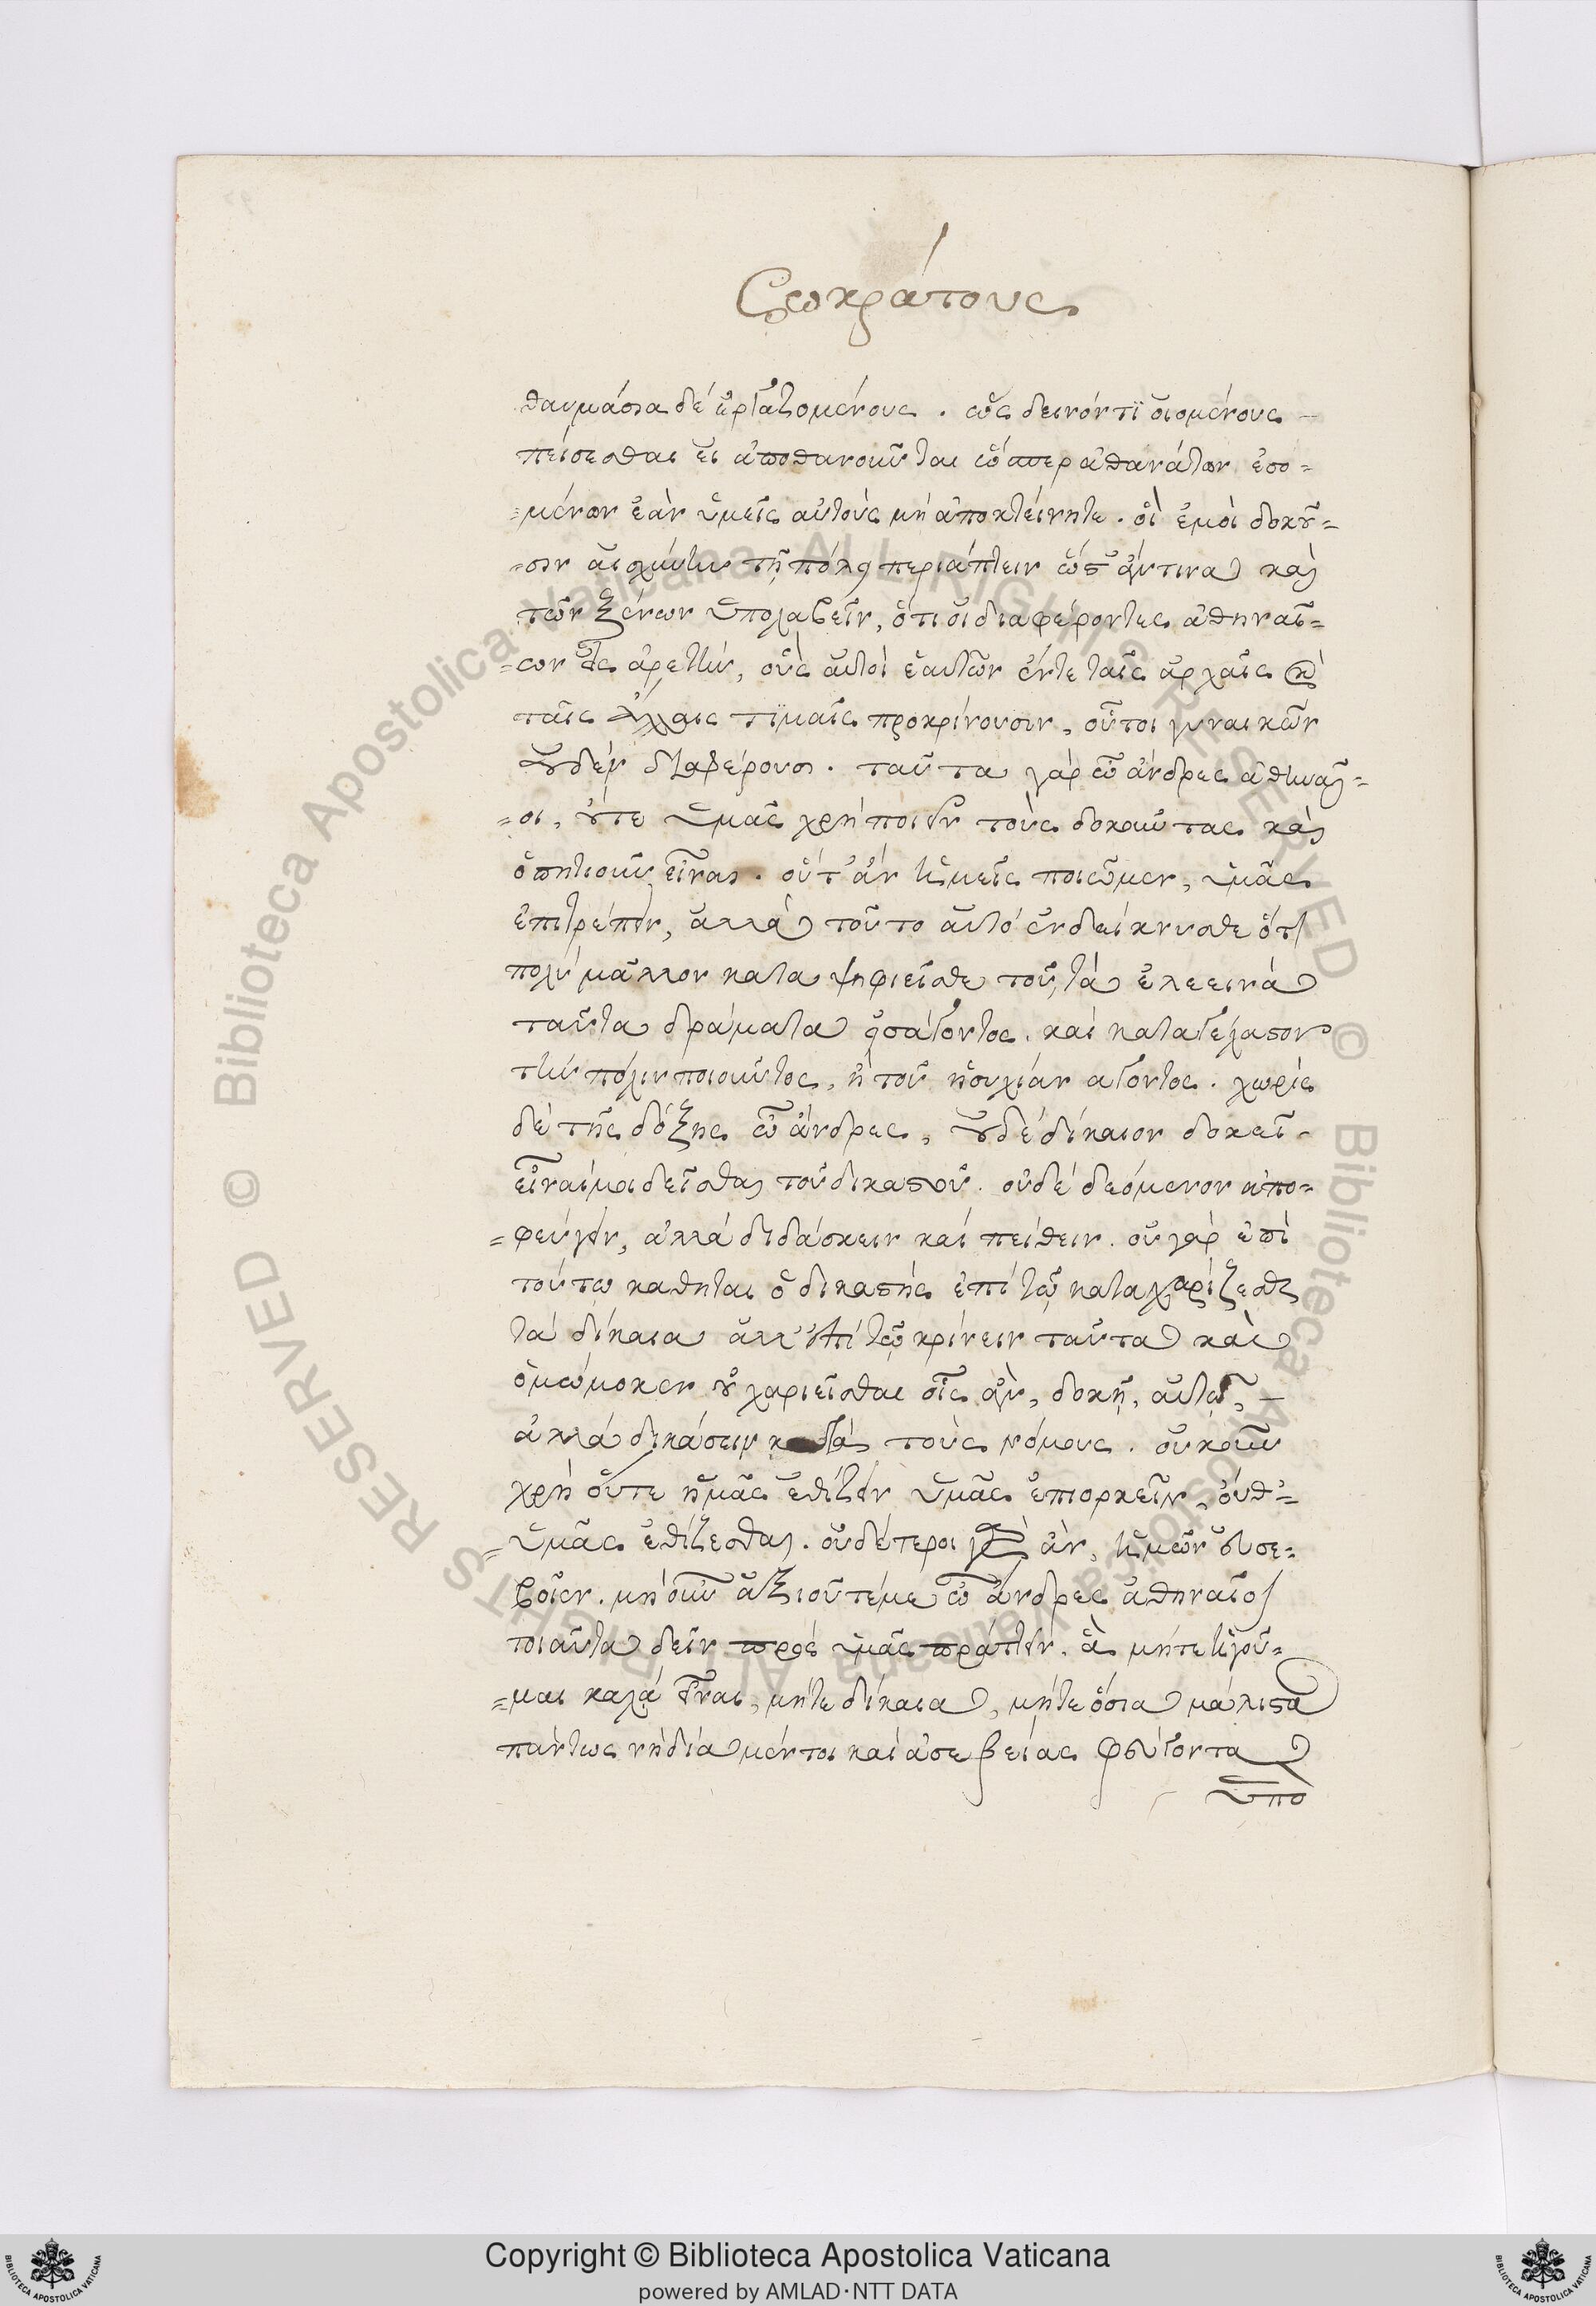 Σωκράτους
θαυμάσια δὲ ἐργαζομένους. ὡς δεινόν τι οἰομένους
πείσεσθαι εἰ ἀποθανοῦνται ὥσπερ ἀθανάτων ἐσο=
=μένων ἐὰν ὑμεῖς αὐτοὺς μὴ ἀποκτείνητε. οἳ ἐμοὶ δοκοῦ=
=σιν αἰσχύνην τῇ πόλει περιάπτειν ὥστ' ἄν τινα καὶ
τῶν ξένων ὑπολαβεῖν, ὅτι οἱ διαφέροντες ἀθηναί=
=ων εἰς ἀρετήν, οὓς αὐτοὶ ἑαυτῶν ἔν τε ταῖς ἀρχαῖς καὶ
ταῖς ἄλλαις τιμαῖς προκρίνουσιν, οὗτοι γυναικῶν
οὐδὲν διαφέρουσι. ταῦτα γὰρ ὦ ἄνδρες ἀθηναῖ=
=οι, οὔτε ὑμᾶς χρὴ ποιεῖν τοὺς δοκοῦντας καὶ
ὁπητιοῦν εἶναι. οὔτ' ἂν ἡμεῖς ποιῶμεν, ὑμᾶς
ἐπιτρέπειν, ἀλλὰ τοῦτο αὐτὸ ἐνδείκνυσθε ὅτι
πολὺ μᾶλλον καταψηφιεῖσθε τοῦ, τὰ ἐλεεινὰ
ταῦτα δράματα εἰσάγοντος. καὶ καταγέλαστον
τὴν πόλιν ποιοῦντος, ἢ τοῦ ἡσυχίαν ἄγοντος. χωρὶς
δὲ τῆς δόξης ὦ ἄνδρες, οὐδὲ δίκαιον δοκεῖ
εἶναί μοι δεῖσθαι τοῦ δικαστοῦ. οὐδὲ δεόμενον ἀπο=
=φεύγειν, ἀλλὰ διδάσκειν καὶ πείθειν. οὐ γὰρ ἐπὶ
τούτῳ κάθηται ὁ δικαστὴς ἐπὶ τῷ καταχαρίζεσθαι
τὰ δίκαια ἀλλ' ἐπὶ τῷ κρίνειν ταῦτα καὶ
ὀμώμοκεν οὐ χαριεῖσθαι οἷς ἂν, δοκῇ, αὐτῷ,
ἀλλὰ δικάσειν κατὰ τοὺς νόμους. οὐκοῦν
χρὴ οὔτε ἡμᾶς ἐθίζειν ὑμᾶς ἐπιορκεῖν, οὔθ'=
=ὑμᾶς ἐθίζεσθαι. οὐδέτεροι γὰρ ἂν, ἡμῶν εὐσε=
βοῖεν. μὴ οὖν ἀξιοῦτέ με ὦ ἄνδρες ἀθηναῖοι
τοιαῦτα δεῖν πρὸς ὑμᾶς πράττειν. ἃ μήτε ἡγοῦ=
=μαι καλὰ εἶναι, μήτε δίκαια, μήτε ὅσια μάλιστα
πάντως νὴ δία μέντοι καὶ ἀσεβείας φεύγοντα
ὑπὸ
Copyright © Biblioteca Apostolica Vaticana
powered by AMLAD·NTT DATA
© Biblioteca Apostolica Vaticana ALL RIGHTS RESERVED © Biblioteca Apostolica Vaticana ALL RIGHTS RESERVED
BIBLIOTECA APOSTOLICA VATICANA
BIBLIOTECA APOSTOLICA VATICANA